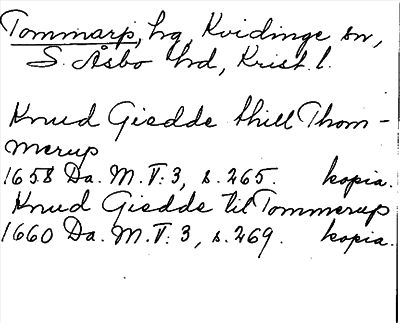 Tommarp, hg, Kvidinge sn,
S. Åsbo hd, Krist. l.
Knud Giedde thill Thom-
merup
1658 Da. M. T: 3, s. 265. kopia.
Knud Giedde til Tommerup
1660 Da. M. T: 3, s. 269. kopia.